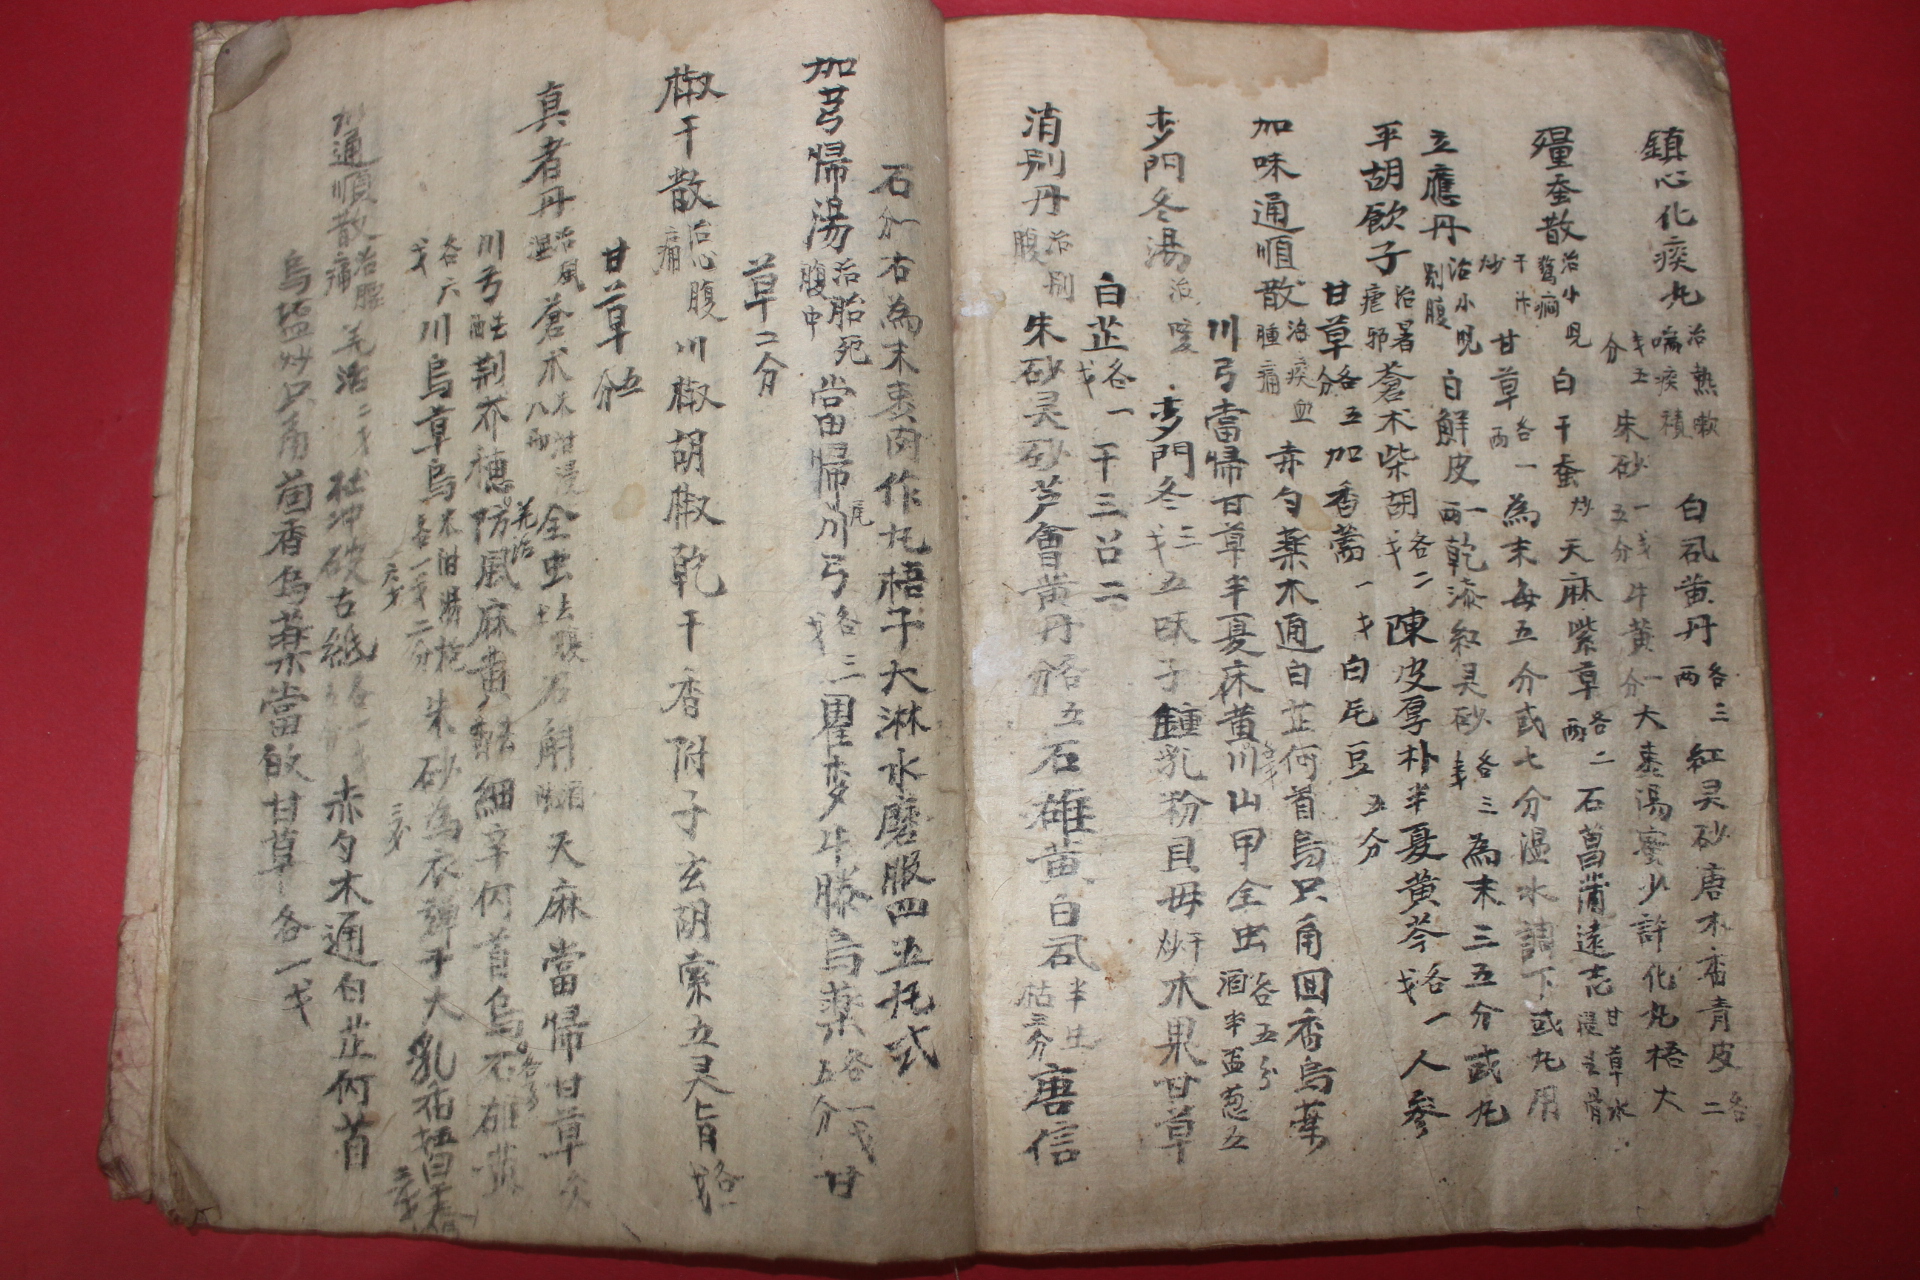 鎮心化痰丸 治熱嗽喘痰積 白礬黃丹 各三兩 紅灵砂唐木香青皮 各二
戈五分 朱砂 一戋五分 牛黃 一分 大棗湯蜜少許化丸梧大
殭蚕散 治小児驚癎 白干蚕 炒 天麻紫草 各二兩 石菖蒲遠志 甘草水浸去骨
干汁炒 甘草 各一兩 為末每五分或七分温水調下或丸用
立應丹 治小児別腹 白鮮皮 一兩 乾漆紅灵砂 各三戋 為末三五分或丸
平胡飮子 治署瘧邪 蒼朮柴胡 各二戈 陳皮厚朴半夏黃芩 各一戈 人參
甘草 各五分 加香薷 一戈 白扁豆 五分
加味通順散 治痰血腫痛 赤勺藥木通白芷何首烏只角回香烏藥
川弓當歸甘草半夏麻黃川山甲全虫 各五分 酒半盃葱五
麥門冬湯 治咳 麥門冬 三戈 五味子鍾乳粉貝母 干炒 木果甘草
白芷 各一戈 干三召二
消別丹 治別腹 朱砂灵砂芦會黃丹 各五分 石雄黃白礬 半生半枯三分 唐信
石 分 右為末棗肉作丸梧子大淋水磨服四五丸式
加芎歸湯 治胎死腹中 當歸 尾 川弓 各三戈 瞿麥牛膝烏藥 各一戈五分 甘
草二分
椒干散 治心腹痛 川椒胡椒乾干香附子玄胡索五灵旨 各一戈
甘草 五分
真者丹 治風濕 蒼朮 米泔浸八兩 全虫 去頭 石斛 酒 天麻當歸甘草灸
川芎 醋去 荆芥穗 羌活 防風麻黃 醋 細辛何首烏石雄黃
各六戈 川烏草烏 米泔湯 各一戋二分 朱砂為衣彈子大乳香
加通順散 治腫痛 羌活 二戈 杜沖破古紙 各一戈 赤勺木通白芷何首
烏 塩炒 只角茴香烏藥當歸甘草 各一戈